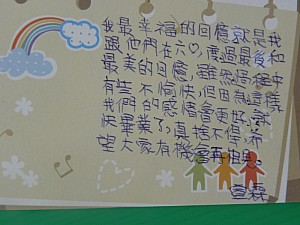 我最幸福的回憶就是我和
跟他們在六♡,度過最後和
最美的回憶,雖然過程中
有些不愉快,但因為這樣
我們的感情會更好,就
快畢業了,真捨不得,希
望大家有機會再相見。
宣霖